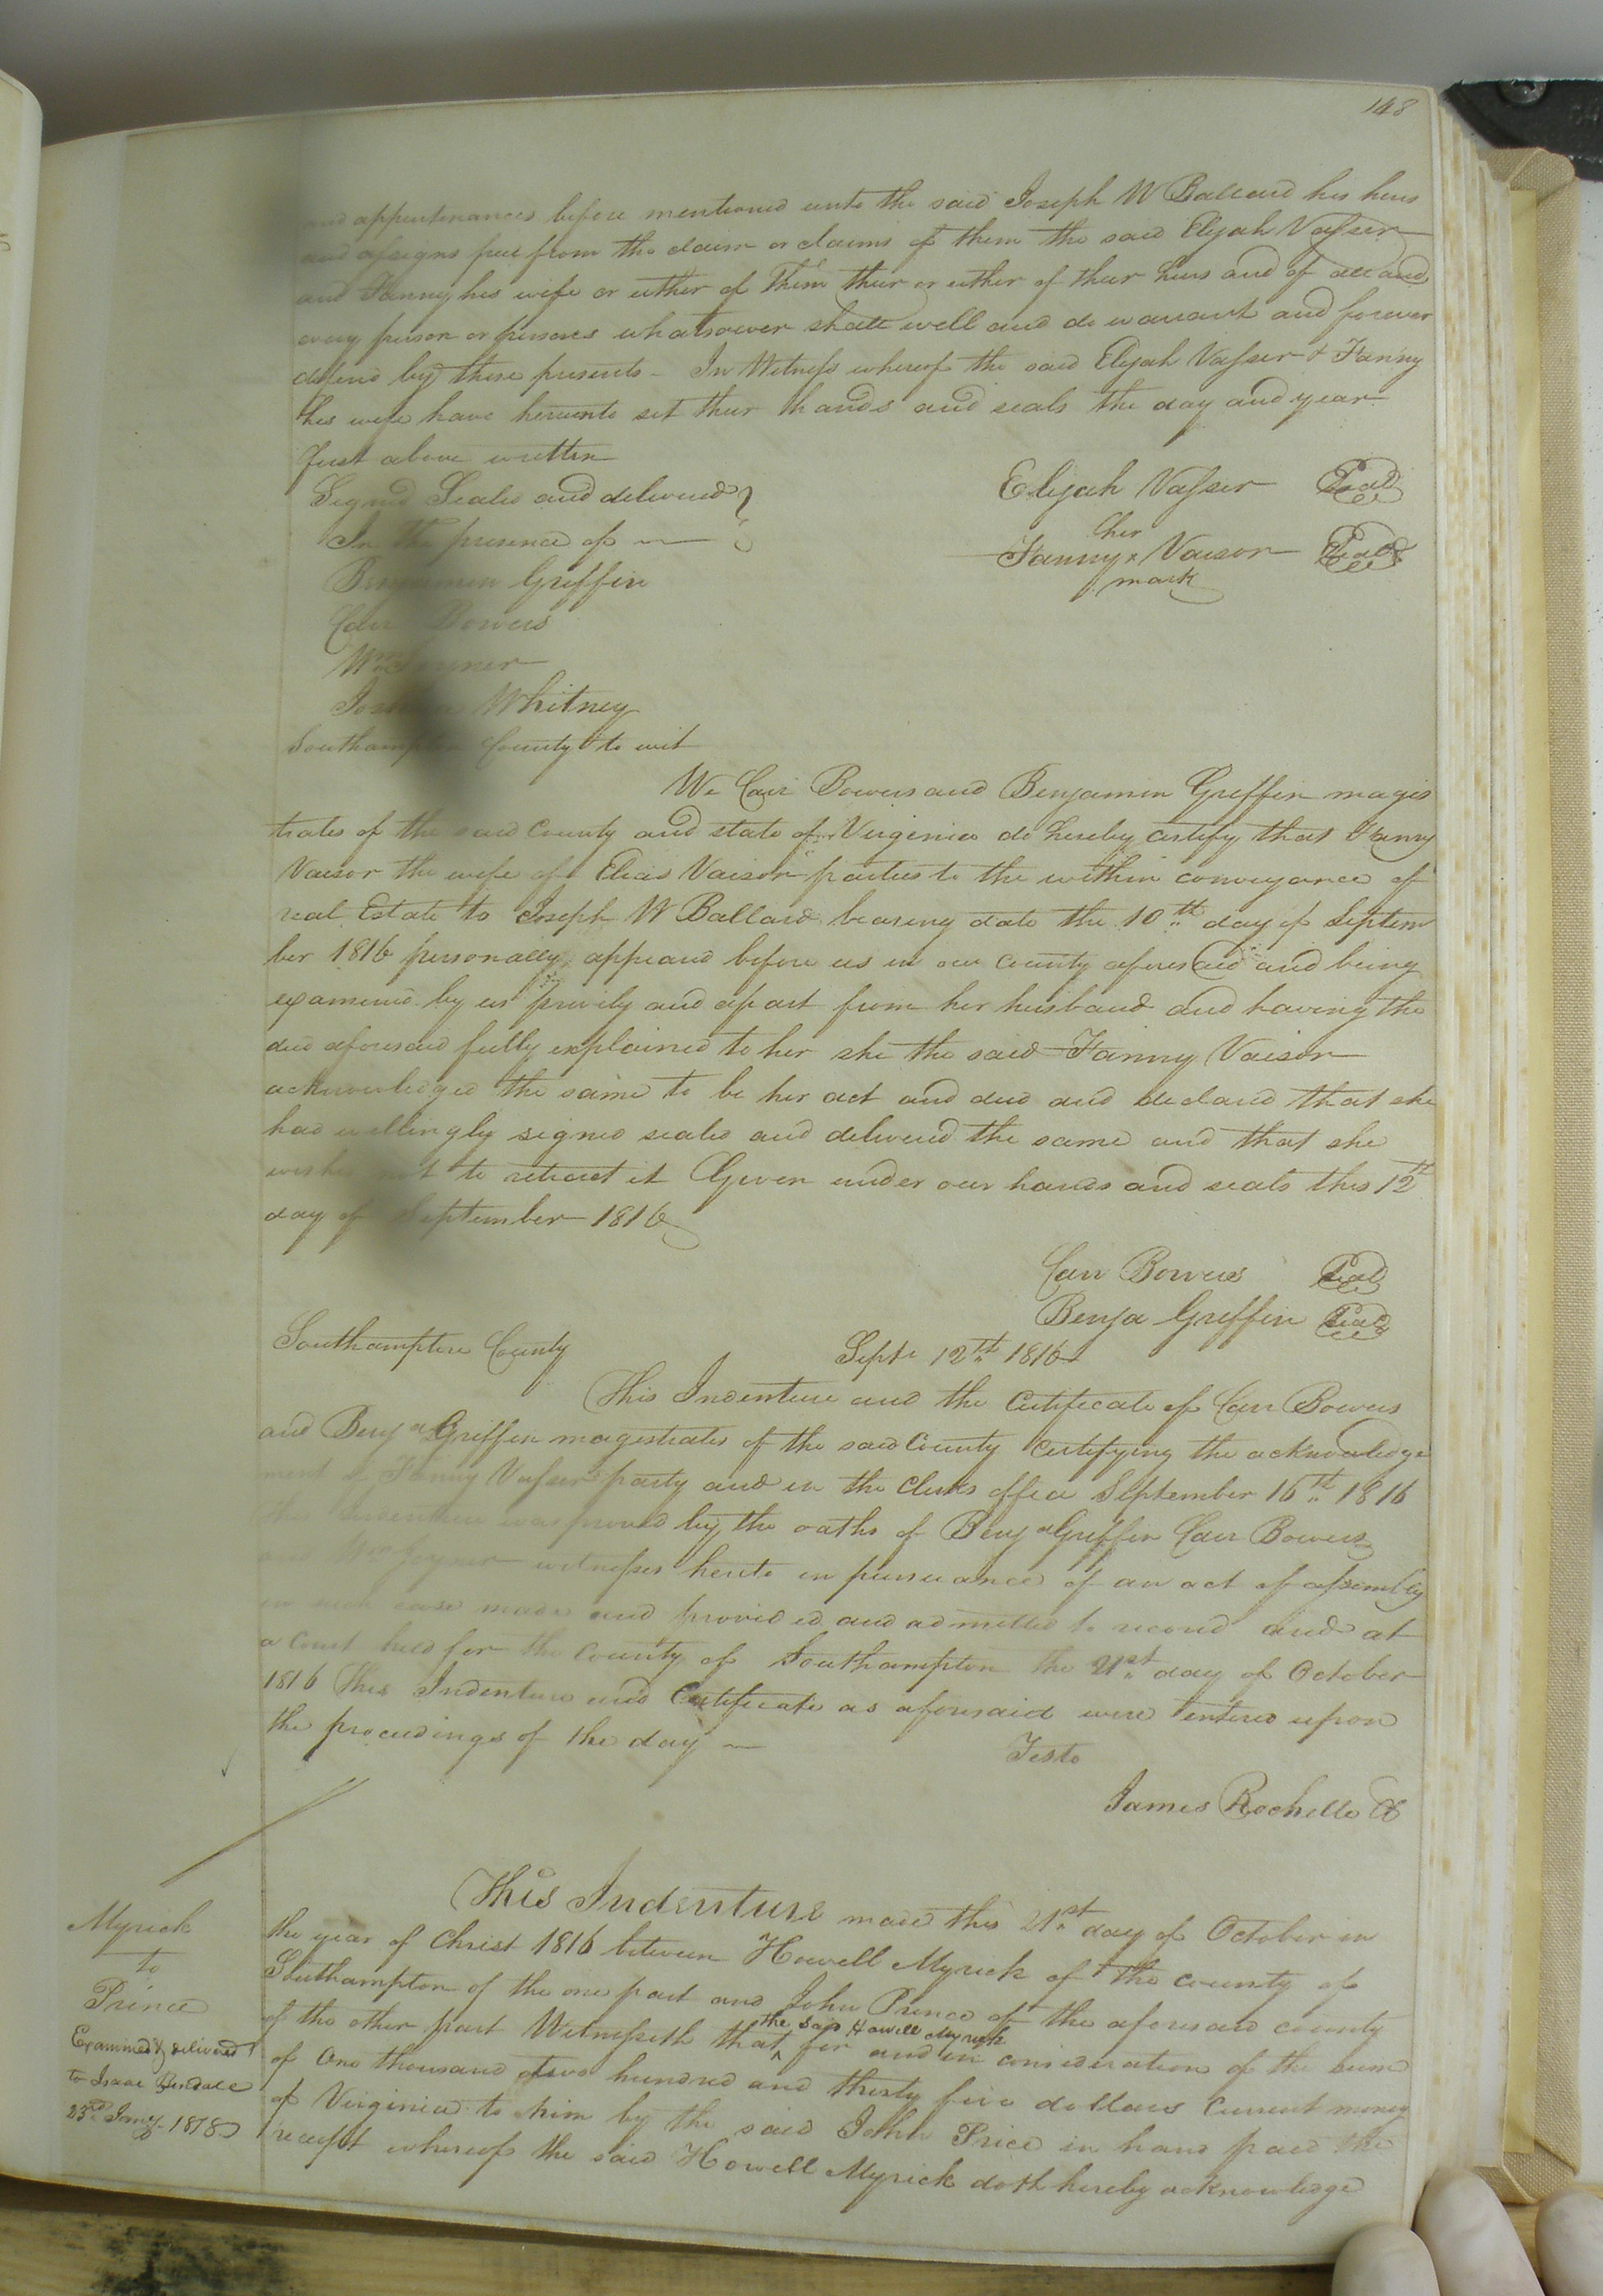 148
and appurtenances before mentioned unto the said Joseph W Ballard his heirs
and assigns free from the claim or claims of them the said Elijah Vasser
and Fanny his wife or either of them their or either of their heirs and of all and
every person or persons whatsoever shall well and do warrant and forever
defend by these presents - In Witness whereof the said Elijah Vasser & Fanny
his wife have hereunto set their hands and seals the day and year
first above written
Signd Seald and delivered
In the presence of
Elijah Vasser Seal
her
Fanny x Vaisor Seal
mark
Benjamin Griffin
Carr Bowers
Wm Joyner
Whitney
Southampton County to wit
We Carr Bowers and Benjamin Griffin magis
trates of the said County and state of Virginia do hereby certify that Fanny
Vaisor the wife of Elias Vaisor parties to the within conveyance of
real Estate to Joseph W Ballard bearing date the 10th day of Septem
ber 1816 personally appeard before us in our county aforesaid and being
examined by us privily and apart from her husband and having the
deed aforesaid fully explained to her she the said Fanny Vaisor
acknowledged the same to be her act and deed and declared that she
had willingly signed sealed and delivered the same and that she
wishes not to retract it Given under our hands and seals this 12th
day of September 1816
Carr Bowers Seal
Benja Griffin Seal
Southampton County Septr 12th 1816
This Indenture and the Certificate of Carr Bowers
and Benja Griffin magestrates of the said County Certifying the acknowledge
ment of Fanny Vasser party and in the Clerks office September 16th 1816
this Indenture was proved by the oaths of Benja Griffin Carr Bowers
and Wm Joyner witnesses hereto in pursuance of an act of assembly
in such case made and provided and admitted to record and at
a Court held for the County of Southampton the 21st day of October
1816 This Indenture and Certificate as aforesaid were entered upon
the proceedings of the day
Teste
James Rochelle Cl
Myrick
to
Prince
Examined & delivered
to Isaac
23rd Jany 1818
This Indenture made this 21st day of October in
the year of Christ 1816 between Howell Myrick of the county of
Southampton of the one part and John Prince of the aforesaid county
of the other part Witnesseth that the said Howell Myrick for and in consideration of the sum
of One thousand two hundred and thirty five dollars Current money
of Virginia to him by the said John Price in hand paid the
receipt whereof the said Howell Myrick doth hereby acknowledge